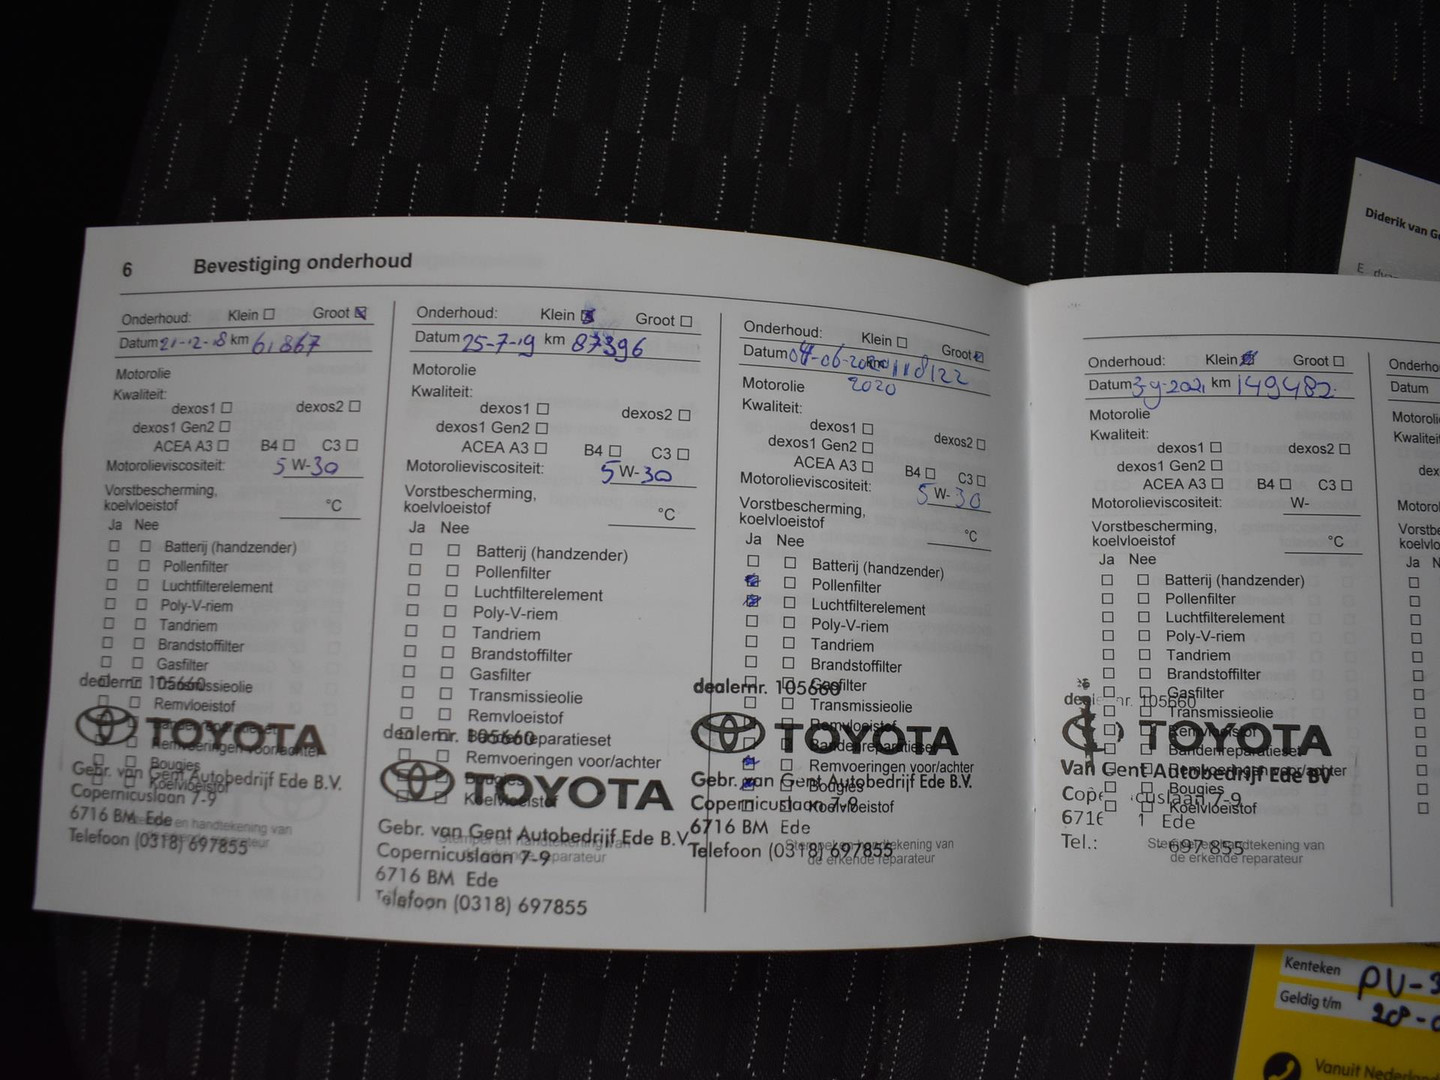 6 Bevestiging onderhoud
Onderhoud: Klein Groot
Datum 21-12-18 km 61867
Motorolie
Kwaliteit:
dexos1 dexos2
dexos1 Gen2
ACEA A3 B4 C3
Motorolieviscositeit: 5 W-30
Vorstbescherming,
koelvloeistof °C
Ja Nee
Batterij (handzender)
Pollenfilter
Luchtfilterelement
Poly-V-riem
Tandriem
Brandstoffilter
Gasfilter
Transmissieolie
dealernr. 105660
Remvloeistof
TOYOTA
Remvoeringen voor/achter
Bougies
Gebr. van Gent Autobedrijf Ede B.V.
Koelvloeistof
Copernicuslaan 7-9
6716 BM Ede
en handtekening van
Telefoon (0318) 697855
Onderhoud: Klein Groot
Datum 25-7-19 km 87396
Motorolie
Kwaliteit:
dexos1 dexos2
dexos1 Gen2
ACEA A3 B4 C3
Motorolieviscositeit: 5 W-30
Vorstbescherming,
koelvloeistof °C
Ja Nee
Batterij (handzender)
Pollenfilter
Luchtfilterelement
Poly-V-riem
Tandriem
Brandstoffilter
Gasfilter
Transmissieolie
Remvloeistof
Bandenreparatieset
dealernr. 105660
Remvoeringen voor/achter
Bougies
TOYOTA
Koelvloeistof
Gebr. van Gent Autobedrijf Ede B.V.
Stempel en handtekening van
Copernicuslaan 7-9
de erkende reparateur
6716 BM Ede
Telefoon (0318) 697855
Onderhoud: Klein Groot
Datum 04-06-2020 km 118122
2020
Motorolie
Kwaliteit:
dexos1 dexos2
dexos1 Gen2
ACEA A3 B4 C3
Motorolieviscositeit: 5 W-30
Vorstbescherming,
koelvloeistof °C
Ja Nee
Batterij (handzender)
Pollenfilter
Luchtfilterelement
Poly-V-riem
Tandriem
Brandstoffilter
Gasfilter
dealernr. 105660
Transmissieolie
Remvloeistof
TOYOTA
Bandenreparatieset
Remvoeringen voor/achter
Gebr. van Gent Autobedrijf Ede B.V.
Bougies
Copernicuslaan 7-9
Koelvloeistof
6716 BM Ede
Telefoon (0318) 697855
Stempel en handtekening van
de erkende reparateur
Onderhoud: Klein Groot
Datum 3-9-2021 km 149482
Motorolie
Kwaliteit:
dexos1 dexos2
dexos1 Gen2
ACEA A3 B4 C3
Motorolieviscositeit: W-
Vorstbescherming,
koelvloeistof °C
Ja Nee
Batterij (handzender)
Pollenfilter
Luchtfilterelement
Poly-V-riem
Tandriem
Brandstoffilter
Gasfilter
dealernr. 105660
Transmissieolie
Remvloeistof
TOYOTA
Bandenreparatieset
Remvoeringen voor/achter
Van Gent Autobedrijf Ede BV
Bougies
Koelvloeistof
7-9
Ede
Tel.: 697 855
Stempel en handtekening van
de erkende reparateur
Datum
Ja
Diderik van
Kenteken PU-
Geldig t/m 28-
Vanuit Nederland